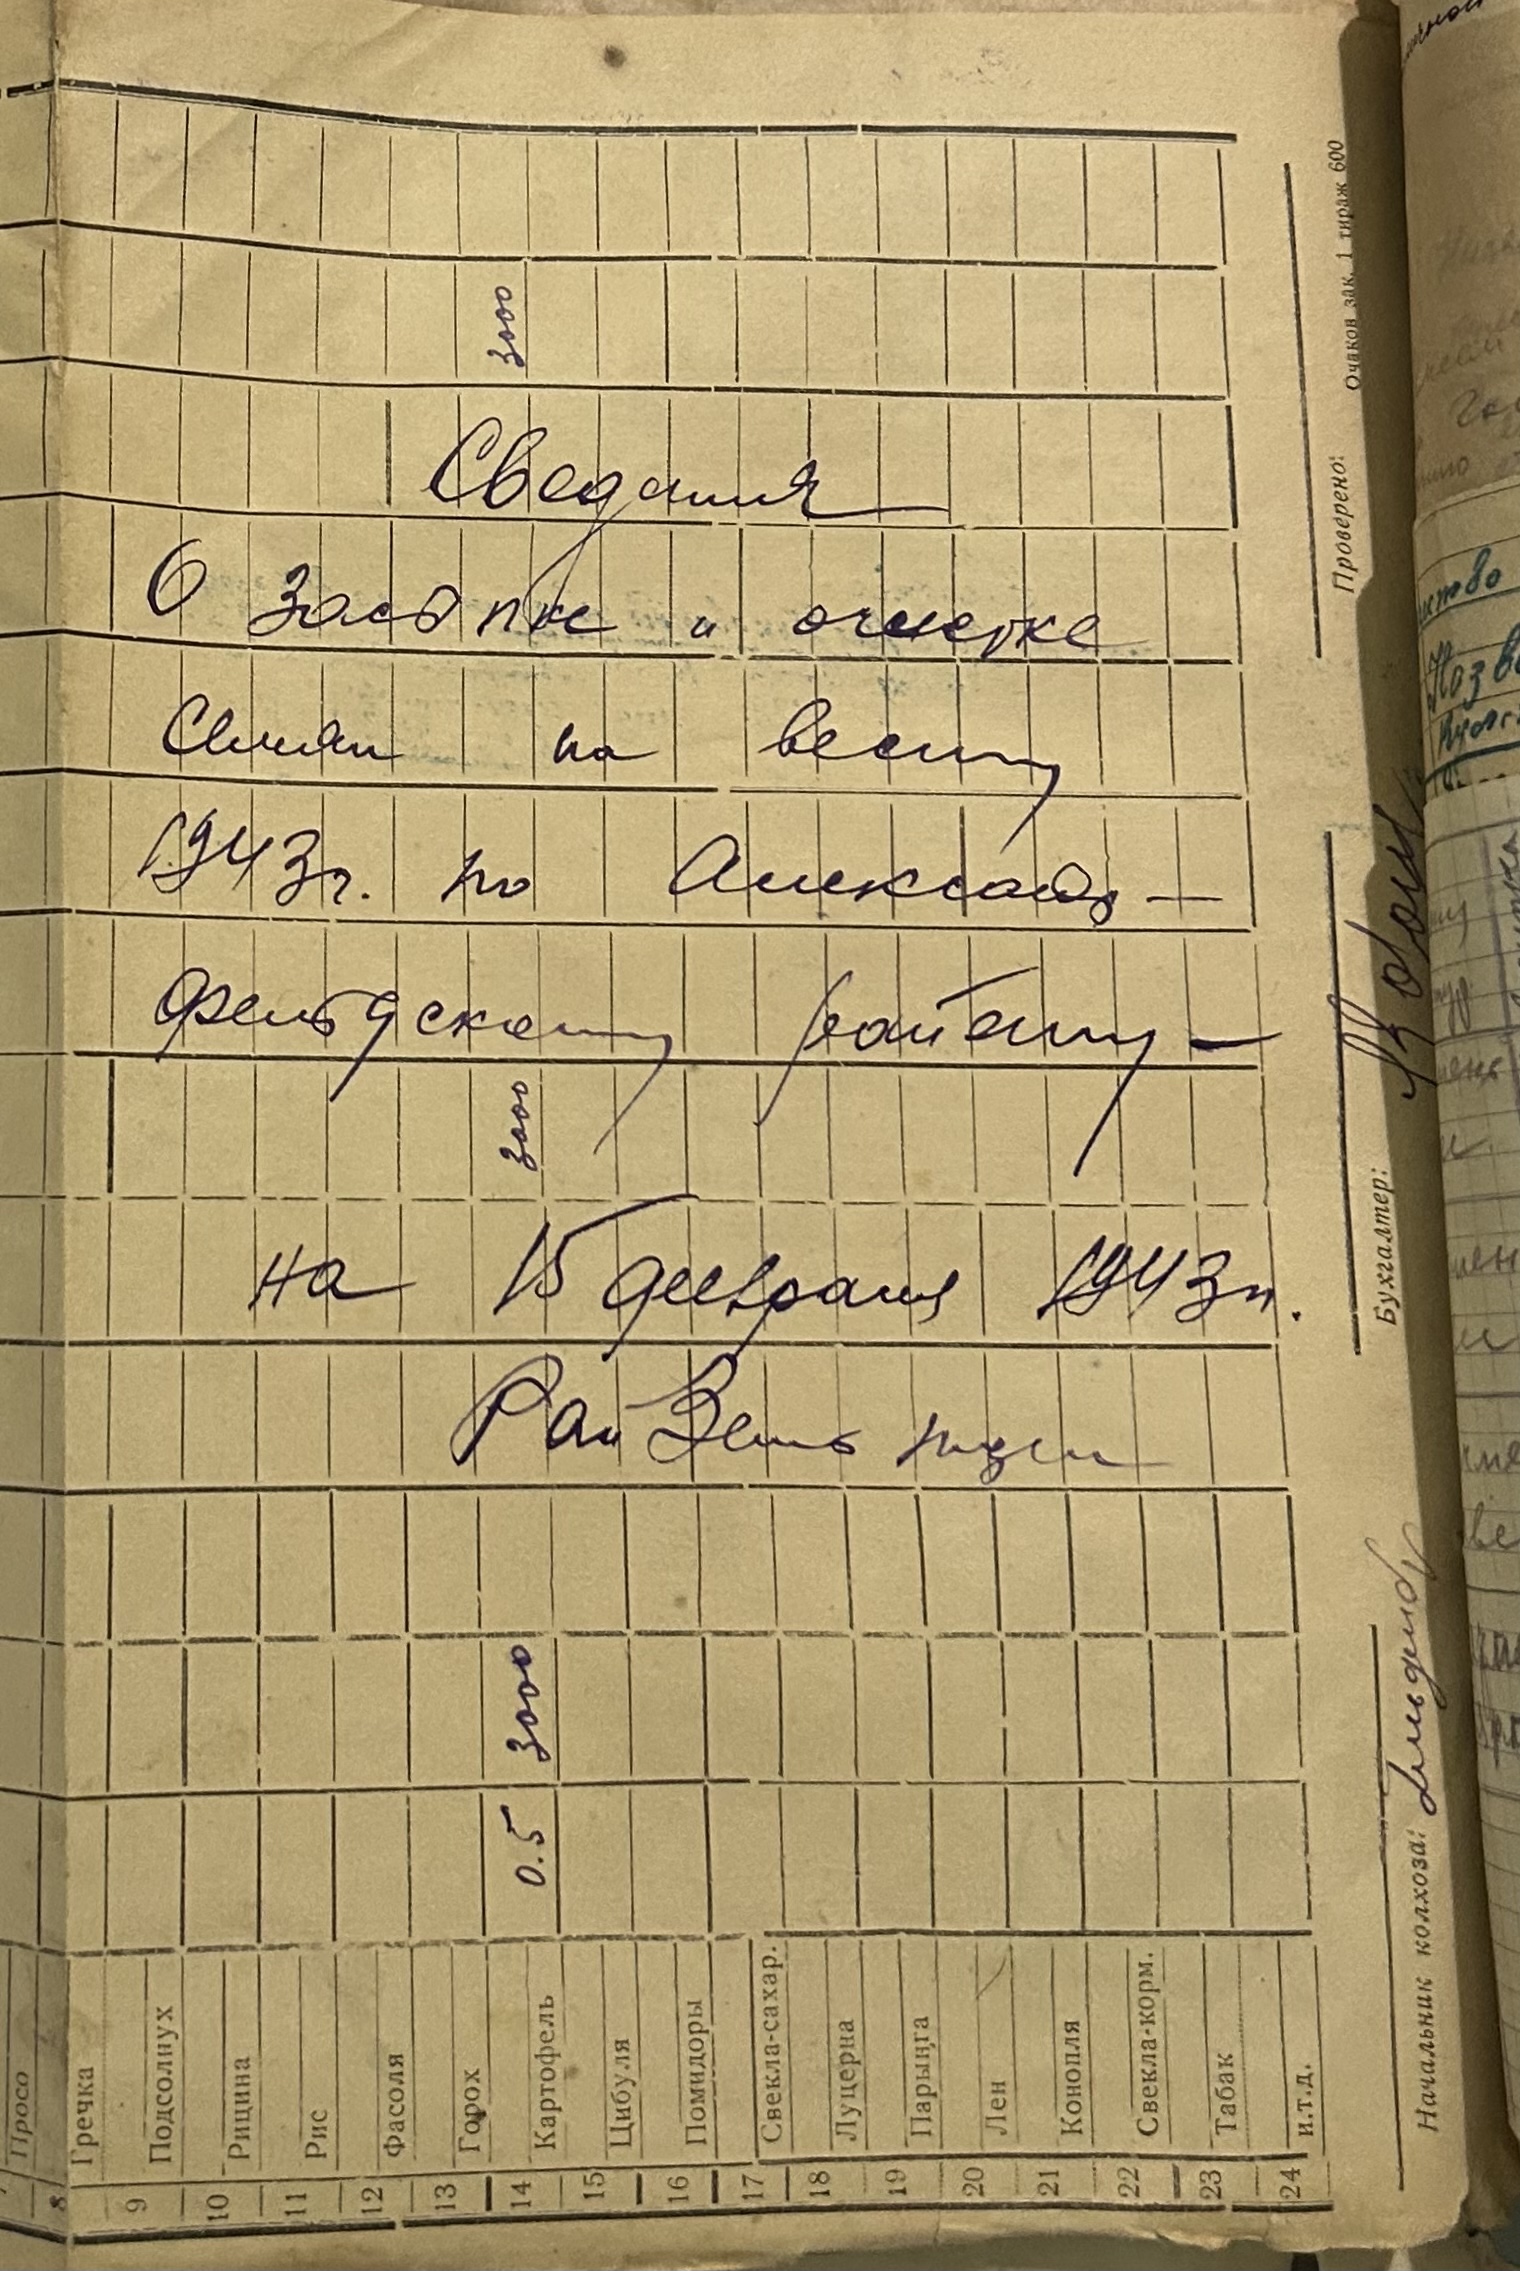 Сведения
О засыпке и очистке
Семян на весну
1943г. по Александр-
фельдскому району -
на 15 февраля 1943г.
Рай Земь
3000
3000
0.5 3000
Просо
8 Гречка
9 Подсолнух
10 Рицина
11 Рис
12 Фасоля
13 Горох
14 Картофель
15 Цибуля
16 Помидоры
17 Свекла-сахар.
18 Луцерна
19 Парынга
20 Лен
21 Конопля
22 Свекла-корм.
23 Табак
24 и.т.д.
Начальник колхоза:
Бухгалтер:
Проверено:
Очаков зак. 1 тираж 600